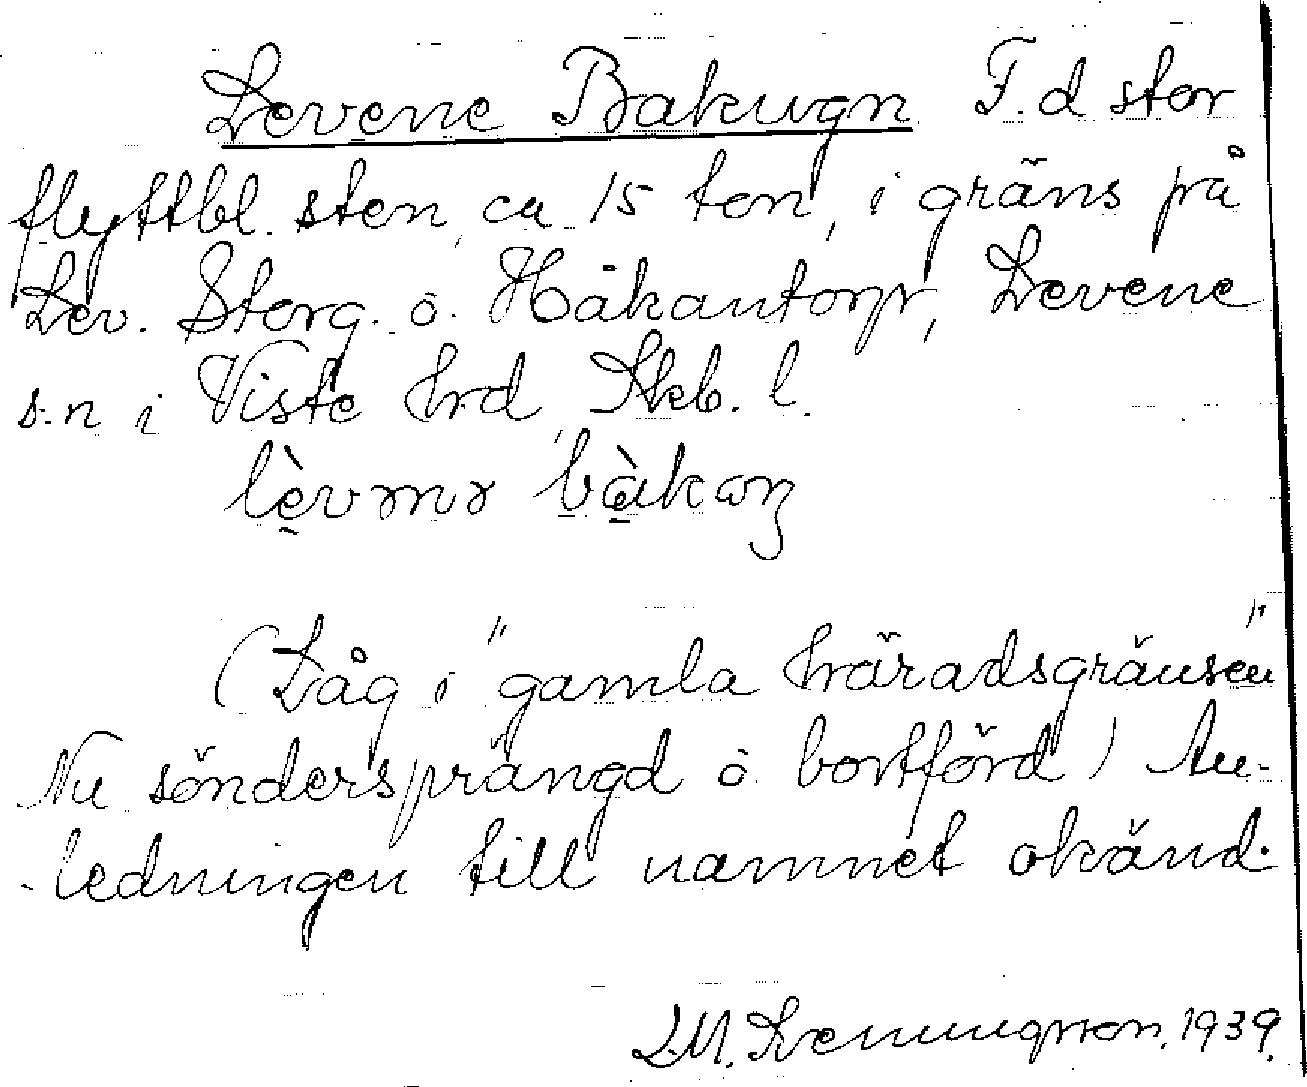 Levene Bakugn F.d stor
flyttbl. sten, ca 15 ton, i gräns på
Lev. Storg. o. Håkantorp, Levene
s:n i Viste hrd, Skb. l.

(Låg i "gamla häradsgränsen"
Nu söndersprängd o bortförd) An-
ledningen till namnet okänd.
1939.